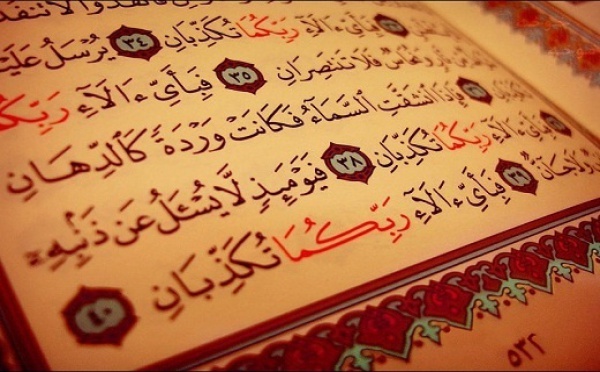 فَبِأَىِّ ءَالَآءِ رَبِّكُمَا تُكَذِّبَانِ ٣٤ يُرْسَلُ
وَنُحَاسٌ فَلَا تَنتَصِرَانِ ٣٥ فَبِأَىِّ ءَالَآءِ
فَإِذَا ٱنشَقَّتِ ٱلسَّمَآءُ فَكَانَتْ وَرْدَةً كَٱلدِّهَانِ
ءَالَآءِ رَبِّكُمَا تُكَذِّبَانِ ٣٨ فَيَوْمَئِذٍ لَّا يُسْـَٔلُ عَن ذَنۢبِهِۦٓ
وَلَا جَآنٌّ ٣٩ فَبِأَىِّ ءَالَآءِ رَبِّكُمَا تُكَذِّبَانِ ٤٠
٥٣٢